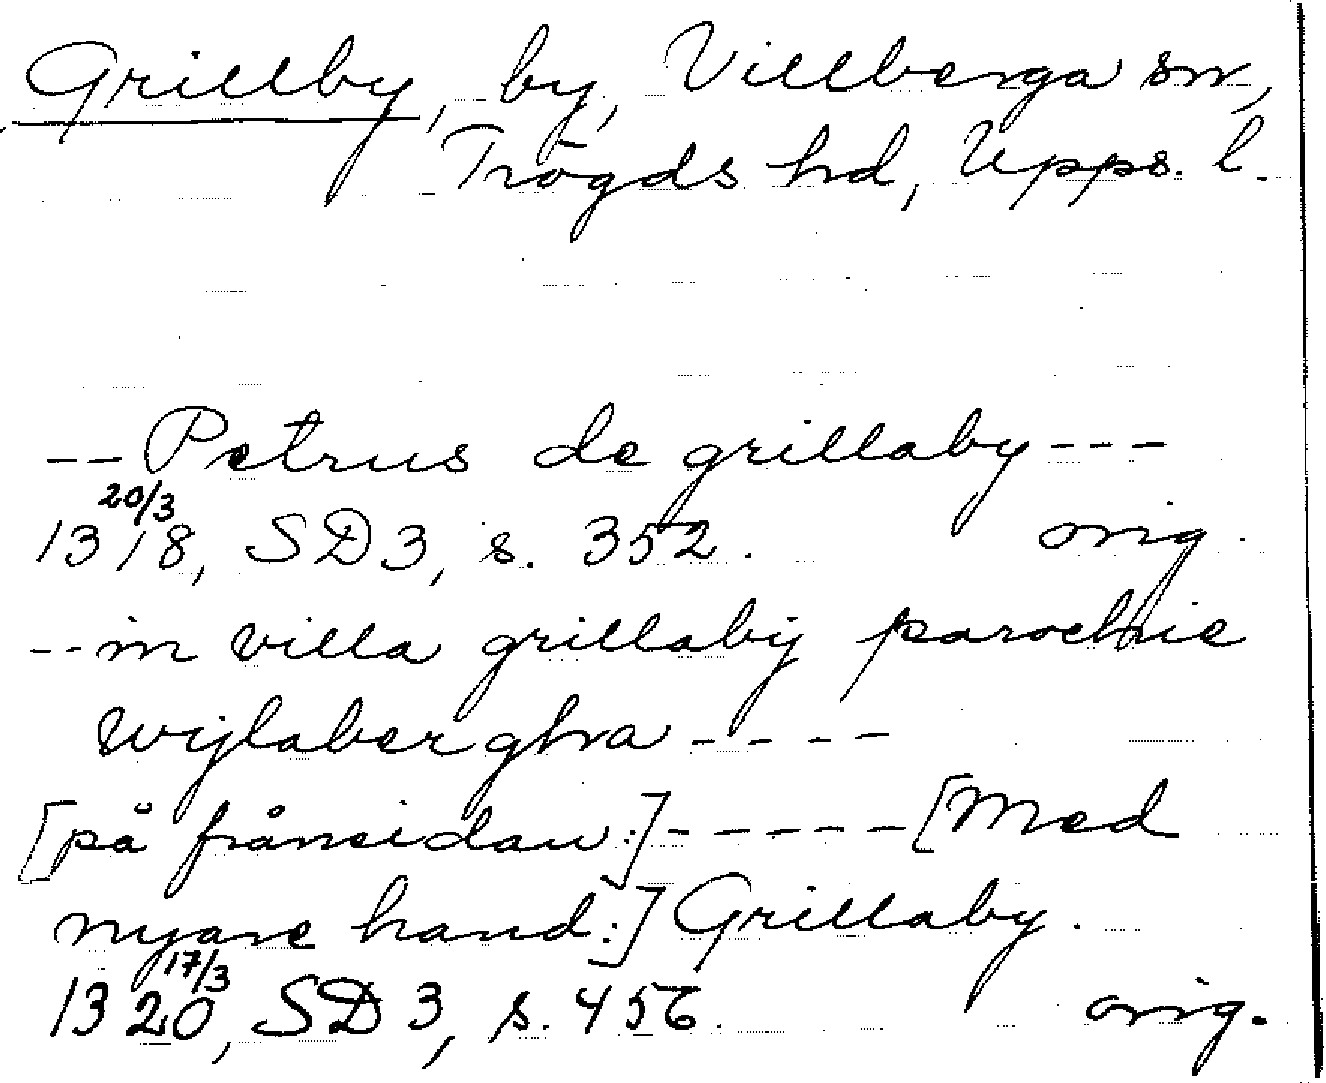 Grillby, by, Villberga sn,
Trögds hd, Upps. l.
-- Petrus de grillaby ---
20/3
1318, SD 3, s. 352. orig.
-- in villa grillabij parochie
wijlaberghra ----
[på frånsidan:] ----- [Med
nyare hand:] Grillaby.
17/3
1320, SD 3, s. 456. orig.